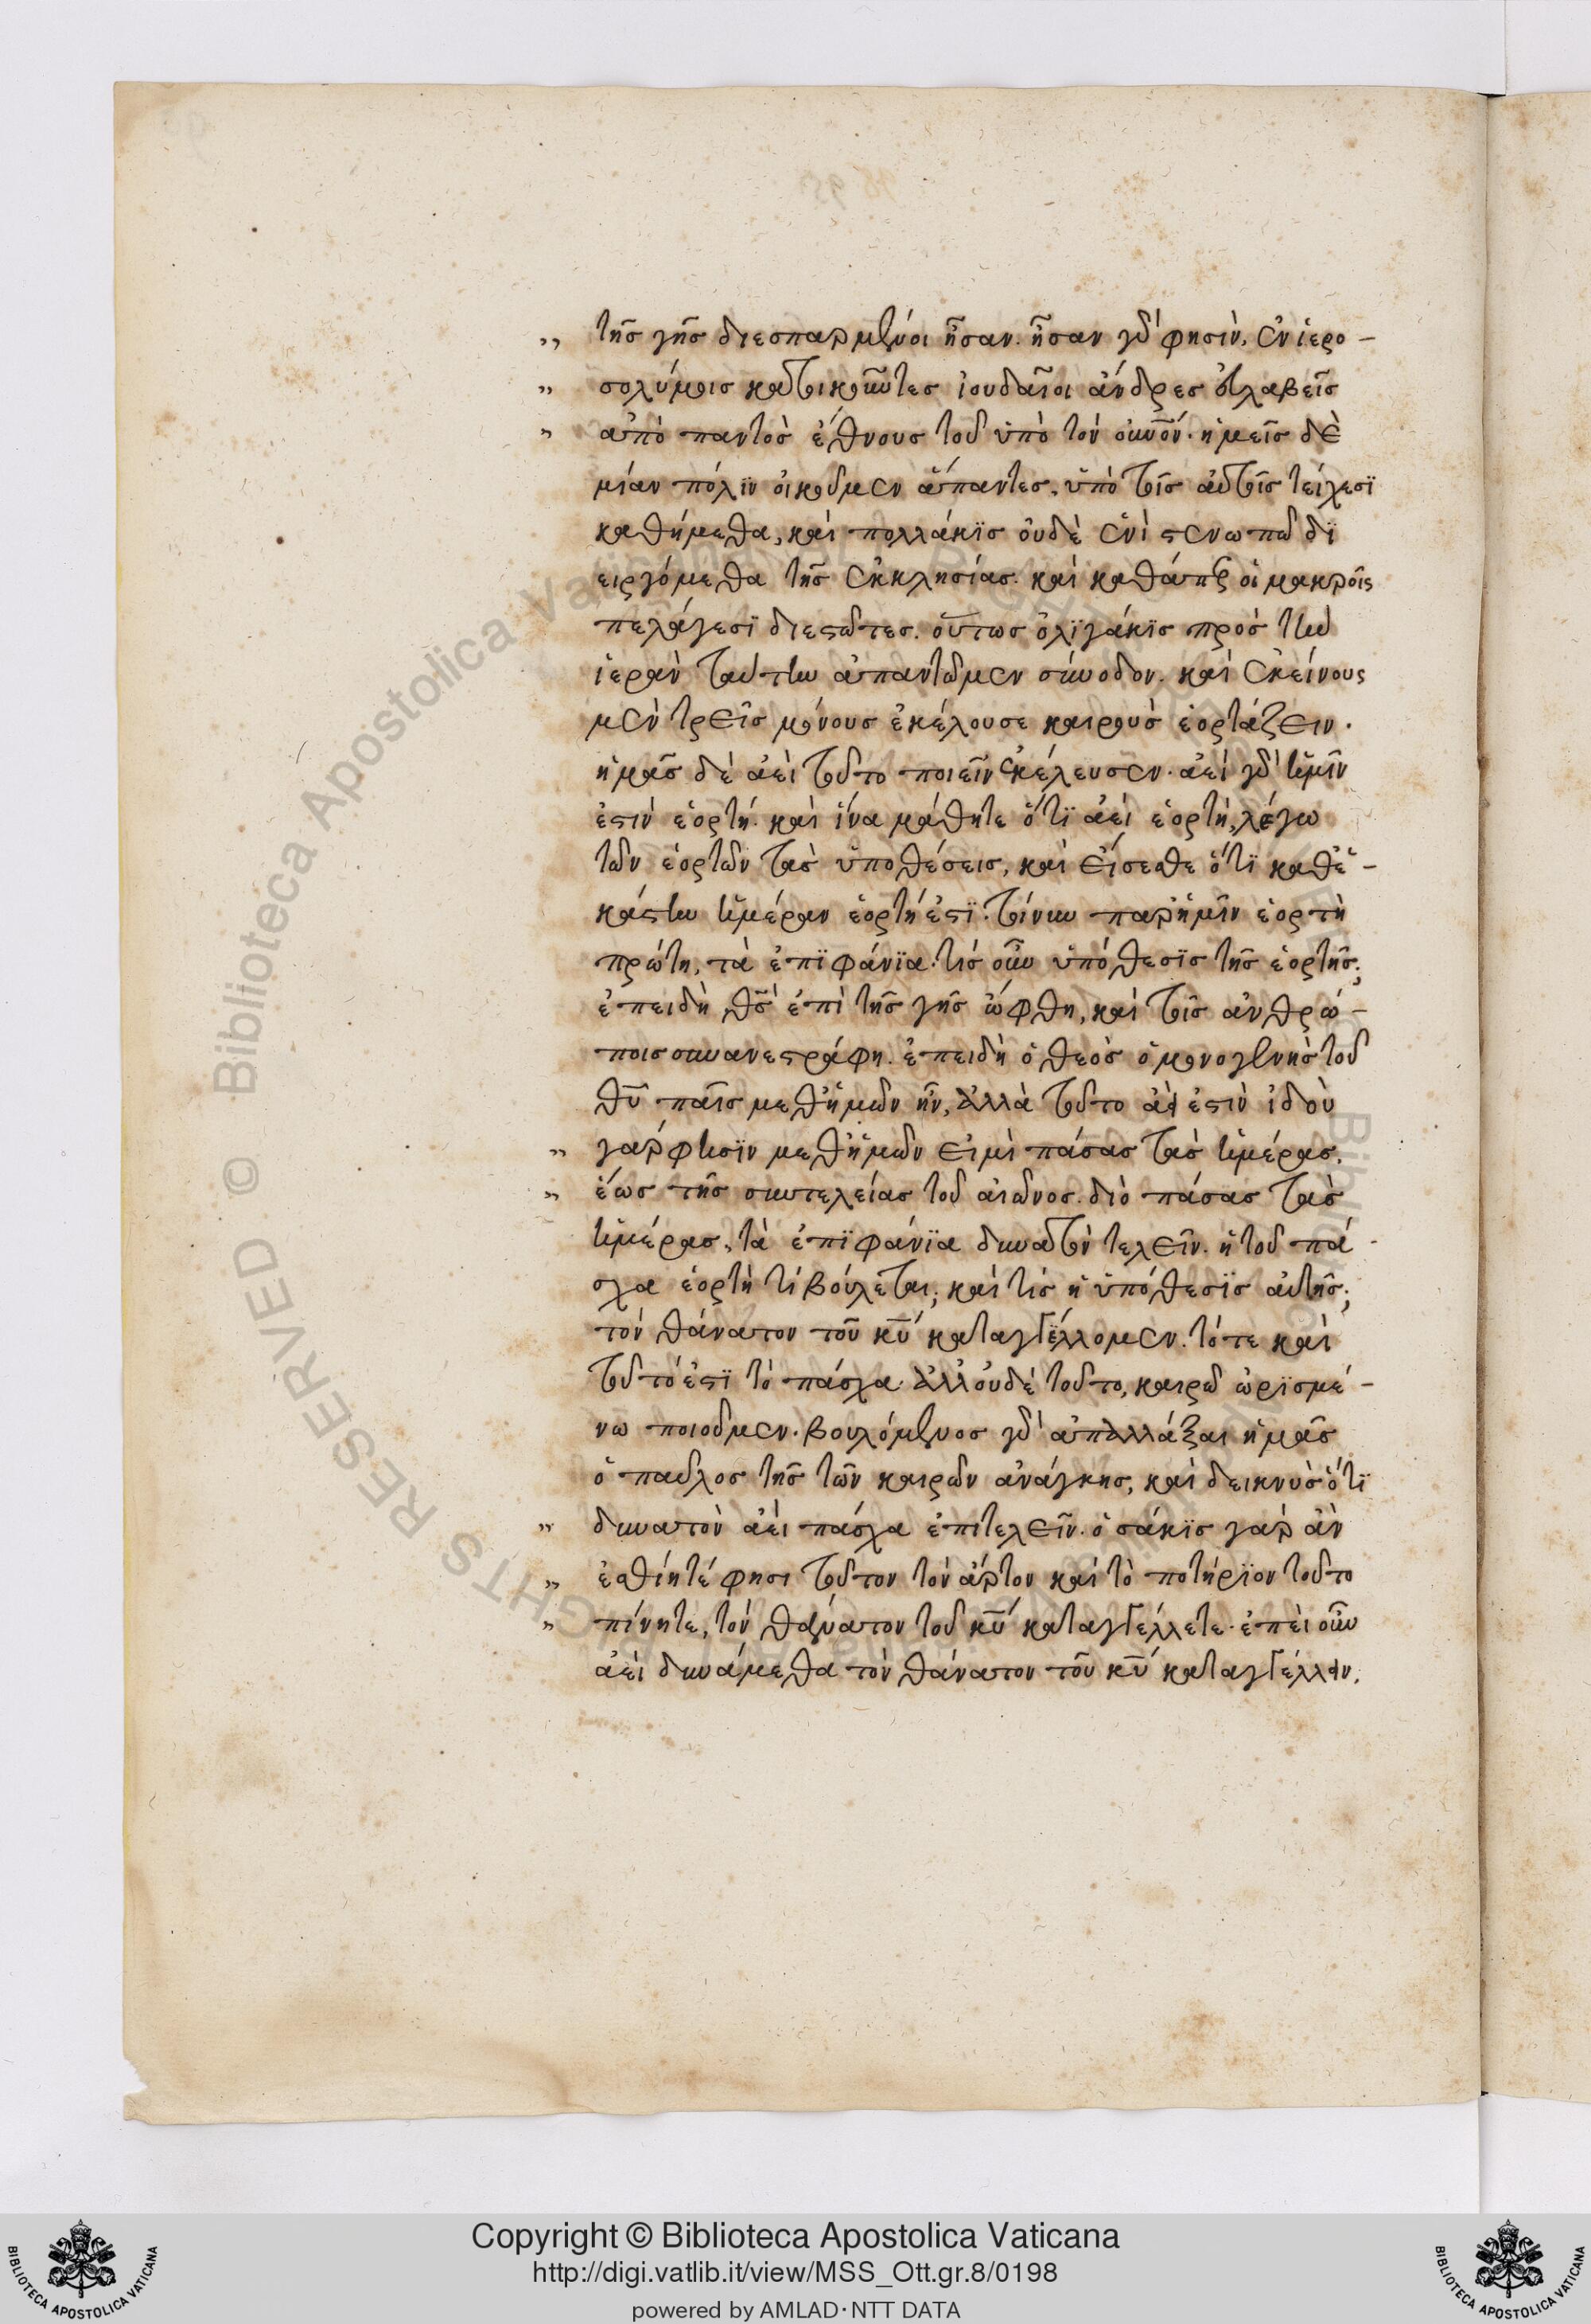 „ τῆς γῆς διεσπαρμένοι ἦσαν. ἦσαν γὰρ φησὶν, ἐν ἱερο-
„ σολύμοις κατοικοῦντες ἰουδαῖοι ἄνδρες εὐλαβεῖς
„ ἀπὸ παντὸς ἔθνους τοῦ ὑπὸ τὸν οὐνὸν. ἡμεῖς δὲ
μίαν πόλϊν οἰκοῦμεν ἅπαντες, ὑπὸ τοῖς αὐτοῖς τείχεσϊ
καθήμεθα, καὶ πολλάκϊς οὐδὲ ἑνὶ στενωπῶ δϊ
ειργόμεθα τῆς ἐκκλησίας. καὶ καθάπερ οἱ μακροῖς
πελάγεσϊ διεστῶτες. οὕτως ὀλϊγάκϊς πρὸς τὴν
ἱερὰν ταύτην ἀπαντῶμεν σύνοδον. καὶ ἐκείνους
μὲν τρεῖς μόνους ἐκέλουσε καιροὺς ἑορτάζειν.
ἡμᾶς δὲ ἀεὶ τοῦτο ποιεῖν ἐκέλευσεν. ἀεὶ γὰρ ἡμῖν
ἐστὶν ἑορτή. καὶ ἵνα μάθητε ὅτϊ ἀεὶ ἑορτὴ, λέγω
τῶν ἑορτῶν τὰς ὑποθέσεις, καὶ εἴσεσθε ὅτϊ καθἑ-
κάστην ἡμέραν ἑορτή ἐστϊ. τοίνυν παρ ἡμῖν ἑορτὴ
πρώτη, τὰ ἐπϊφάνϊα. τίς οὖν ὑπόθεσϊς τῆς ἑορτῆς;
ἐπειδὴ θς ἐπὶ τῆς γῆς ὤφθη, καὶ τοῖς ἀνθρώ-
ποις συνανεστράφη. ἐπειδὴ ὁ θεὸς ὁ μονογενὴς τοῦ
θυ παῖς μεθ ἡμῶν ἦν, ἀλλὰ τοῦτο ἀεὶ ἐστὶν ἰδοὺ
„ γὰρ φησϊν μεθ ἡμῶν εἰμὶ πάσας τὰς ἡμέρας,
„ ἕως τῆς συντελείας τοῦ αἰῶνος. διὸ πάσας τὰς
ἡμέρας, τὰ ἐπϊφάνϊα δυνατὸν τελεῖν. ἡ τοῦ πά-
σχα ἑορτὴ τί βούλεται; καὶ τίς ἡ ὑπόθεσϊς αὐτῆς;
τὸν θάνατον τοῦ κυ καταγγέλλομεν. τότε καὶ
τοῦτό ἐστϊ τὸ πάσχα. ἀλλ οὐδὲ τοῦτο, καιρῶ ὡρϊσμέ-
νω ποιοῦμεν. βουλόμενος γὰρ ἀπαλλάξαι ἡμᾶς
ὁ παῦλος τῆς τῶν καιρῶν ἀνάγκης, καὶ δεικνὺς ὅτϊ
„ δυνατὸν ἀεὶ πάσχα ἐπιτελεῖν. ὁσάκϊς γὰρ ἂν
„ ἐσθίητέ φησι τοῦτον τὸν ἄρτον καὶ τὸ ποτήρϊον τοῦτο
„ πίνητε, τὸν θάνατον τοῦ κυ καταγγέλλετε. ἐπεὶ οὖν
ἀεὶ δυνάμεθα τὸν θάνατον τοῦ κυ καταγγέλλειν,
Copyright © Biblioteca Apostolica Vaticana
http://digi.vatlib.it/view/MSS_Ott.gr.8/0198
powered by AMLAD·NTT DATA